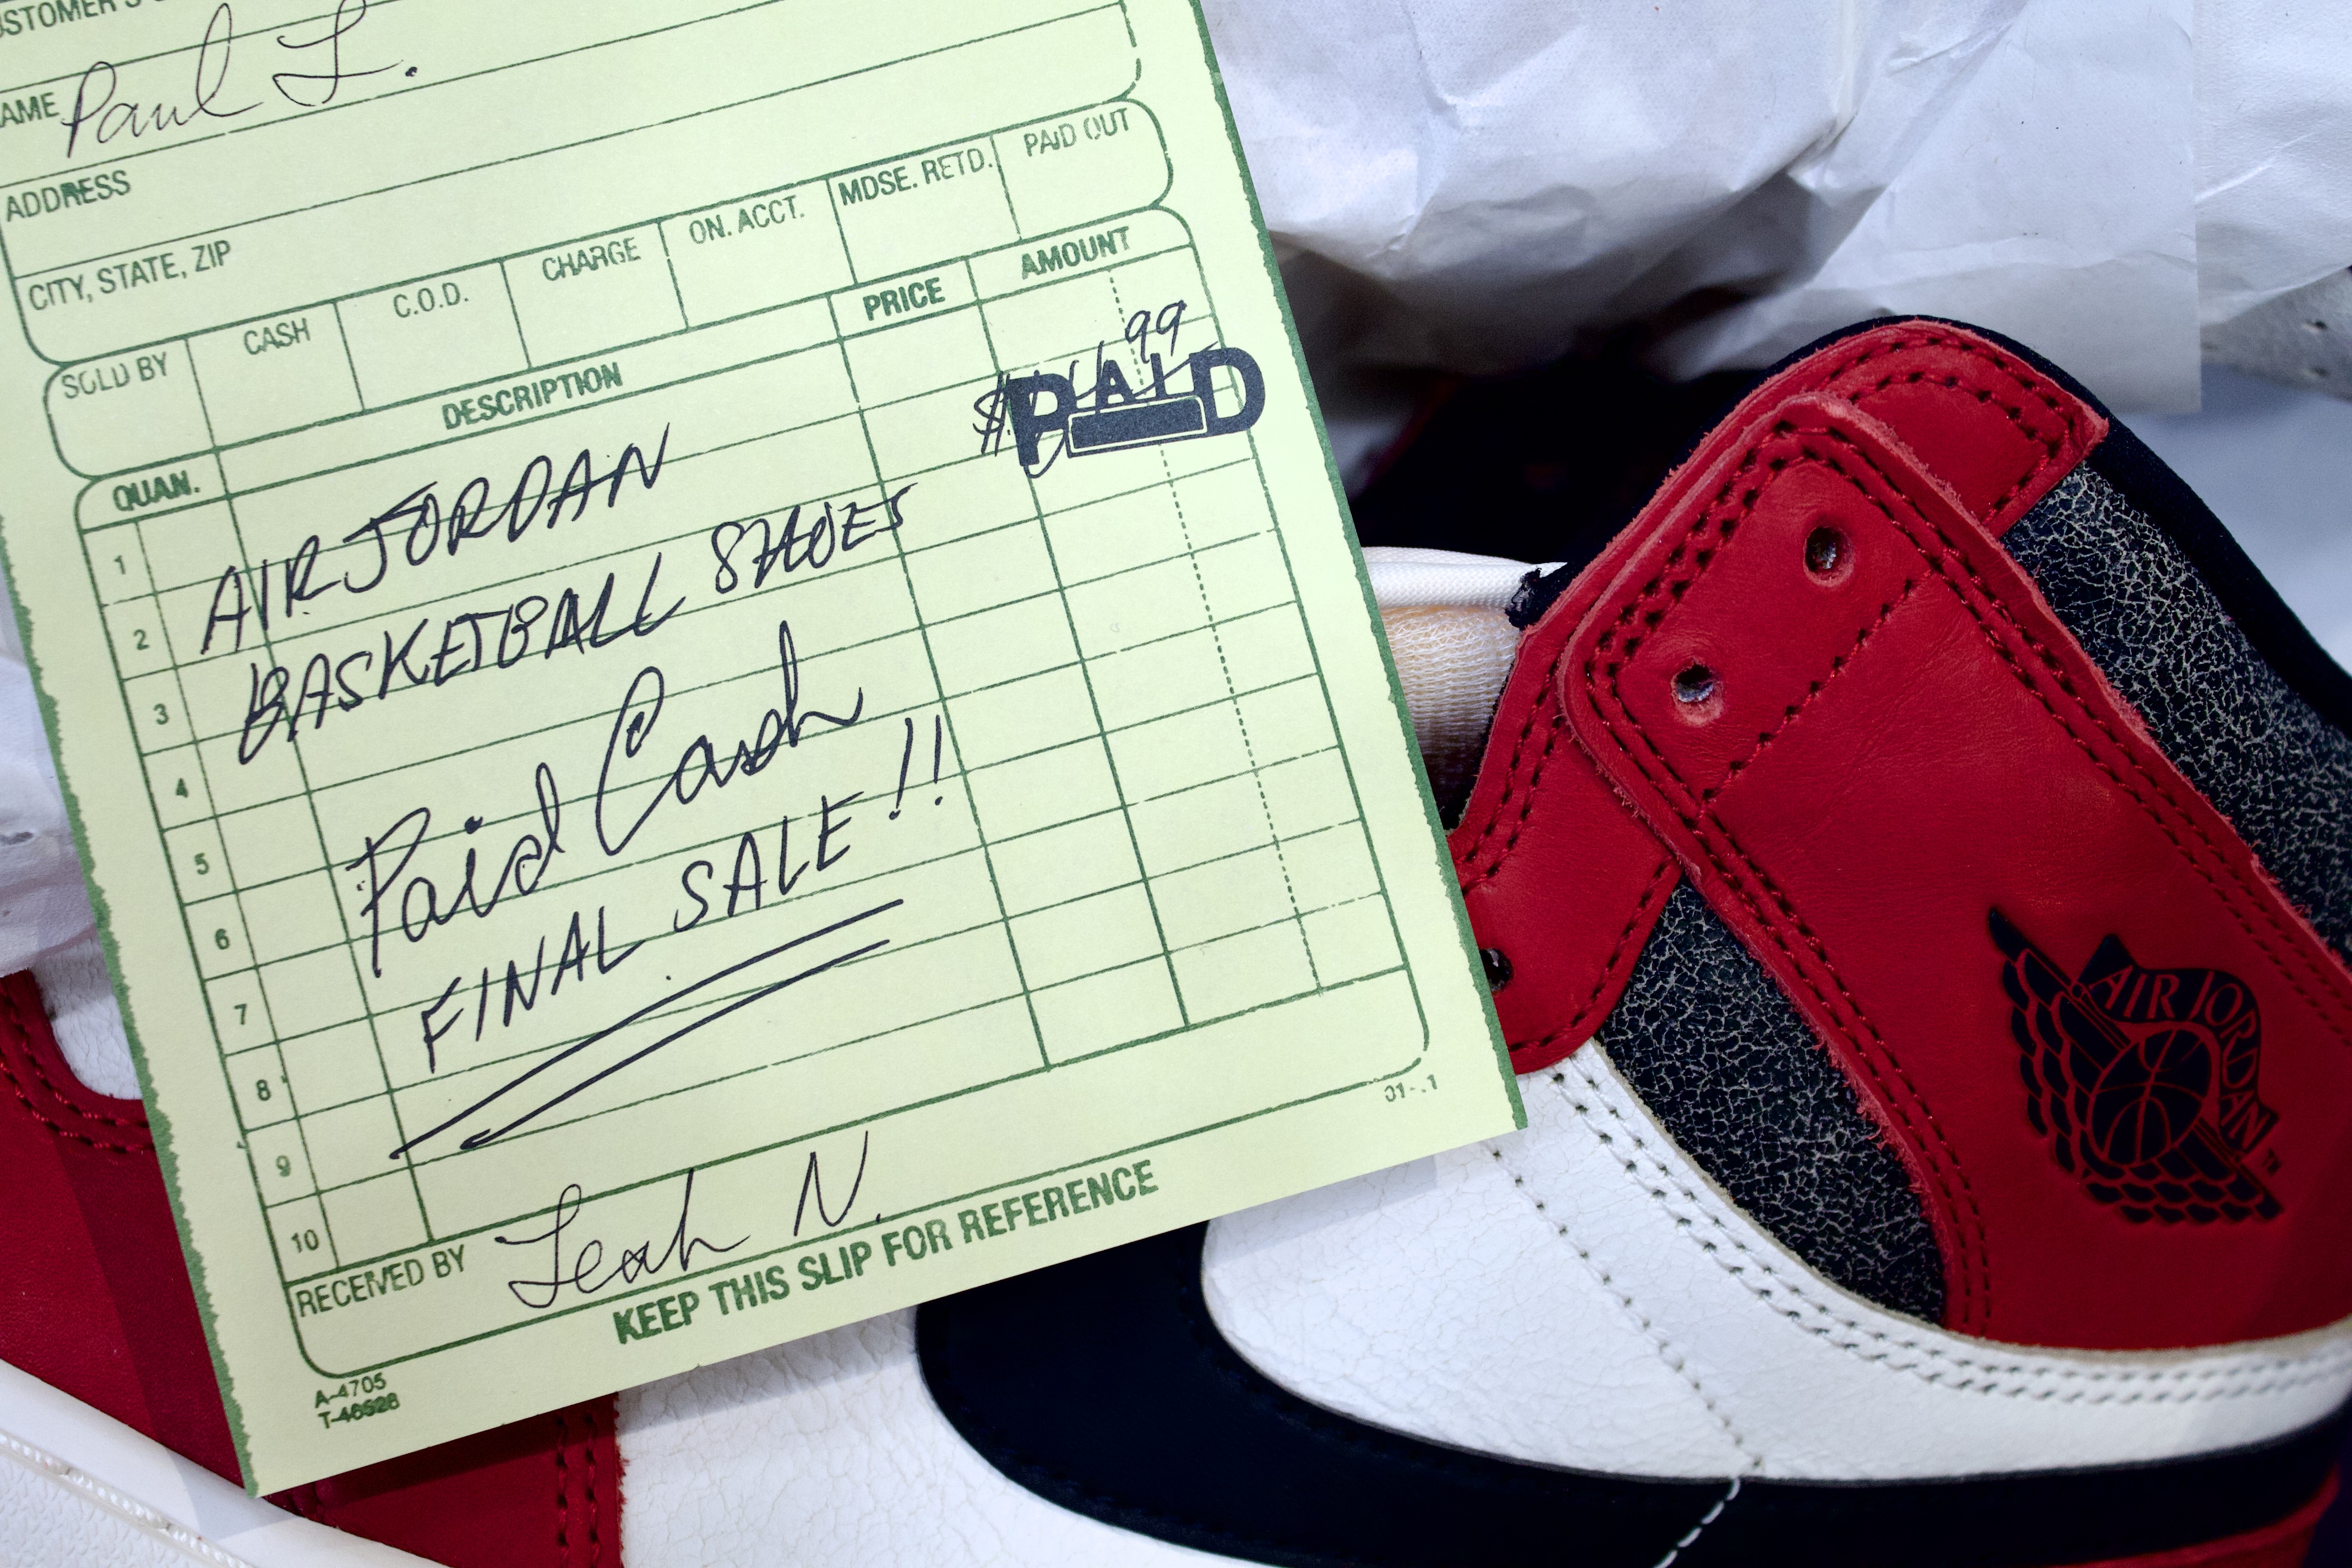 NAME Paul L.
ADDRESS
CITY, STATE, ZIP
SOLD BY CASH C.O.D. CHARGE ON. ACCT. MDSE. RETD. PAID OUT
QUAN. DESCRIPTION PRICE AMOUNT
99
PAID
1 AIR JORDAN
2 BASKETBALL SHOES
3
4 Paid Cash
5
6 FINAL SALE!!
7
8
9
10
RECEIVED BY Leah N.
KEEP THIS SLIP FOR REFERENCE
A-4705
T-46528
AIR JORDAN
TM